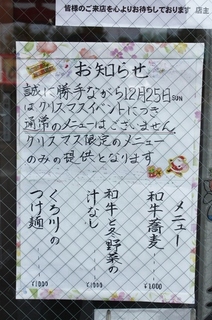 皆様のご来店を心よりお待ちしております 店主
お知らせ
誠に勝手ながら12月25日SUN
はクリスマスイベントにつき
通常のメニューはございません
クリスマス限定のメニュー
のみの提供となります
メニュー
和牛蕎麦
¥1000
和牛と冬野菜の
汁なし
¥1000
くろ川の
つけ麺
¥1000